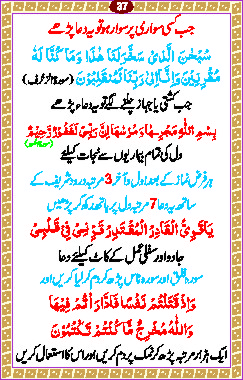 37
جب کسی سواری پر سوار ہو تو یہ دعا پڑھے
سُبْحٰنَ الَّذِیْ سَخَّرَ لَنَا هٰذَا وَمَا كُنَّا لَهٗ
مُقْرِنِیْنَ وَاِنَّاۤ اِلٰی رَبِّنَا لَمُنْقَلِبُوْنَ (سورۃ الزخرف)
جب کشتی یا جہاز چلنے لگے تو یہ دعاء پڑھے
بِسْمِ اللّٰهِ مَجْرٖىهَا وَمُرْسٰهَا اِنَّ رَبِّیْ لَغَفُوْرٌ رَّحِیْمٌ
دل کی تمام بیماریوں سے نجات کیلئے
ہر فرض نماز کے بعد اول و آخر 3 مرتبہ درود شریف کے
ساتھ یہ دعا 7 مرتبہ دل پر ہاتھ رکھ کر پڑھیں
یَاقَوِیُّ الْقَادِرُ الْمُقْتَدِرُ قَوِّنِیْ فِیْ قَلْبِیْ
جادو اور سفلی عمل کے کاٹ کیلئے دعا
سورہ فلق اور سورہ ناس پڑھ کر دم کر لیا کریں اور
وَاِذْ قَتَلْتُمْ نَفْسًا فَادّٰرَءْتُمْ فِیْهَا
وَاللّٰهُ مُخْرِجٌ مَّا كُنْتُمْ تَكْتُمُوْنَ
ایک ہزار مرتبہ پڑھ کر نمک پر دم کریں اور اس کا استعمال کریں